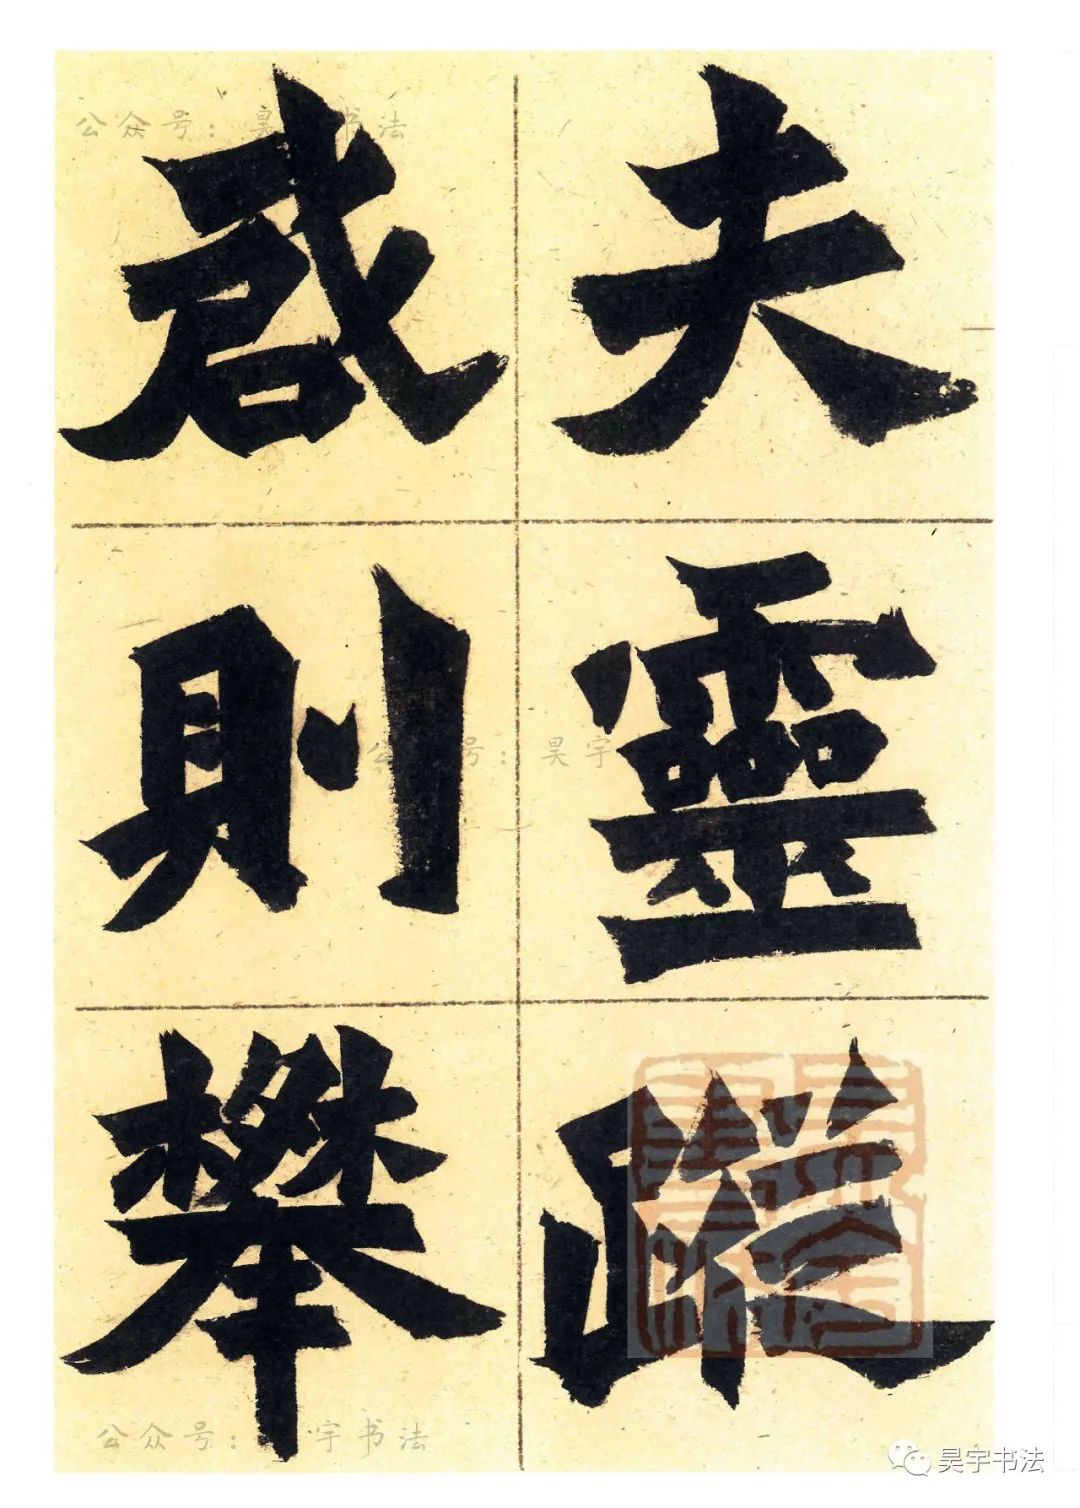 夫靈蹤
啟則攀
公众号：昊 书法
号：昊宇
公众号： 宇书法
昊宇书法